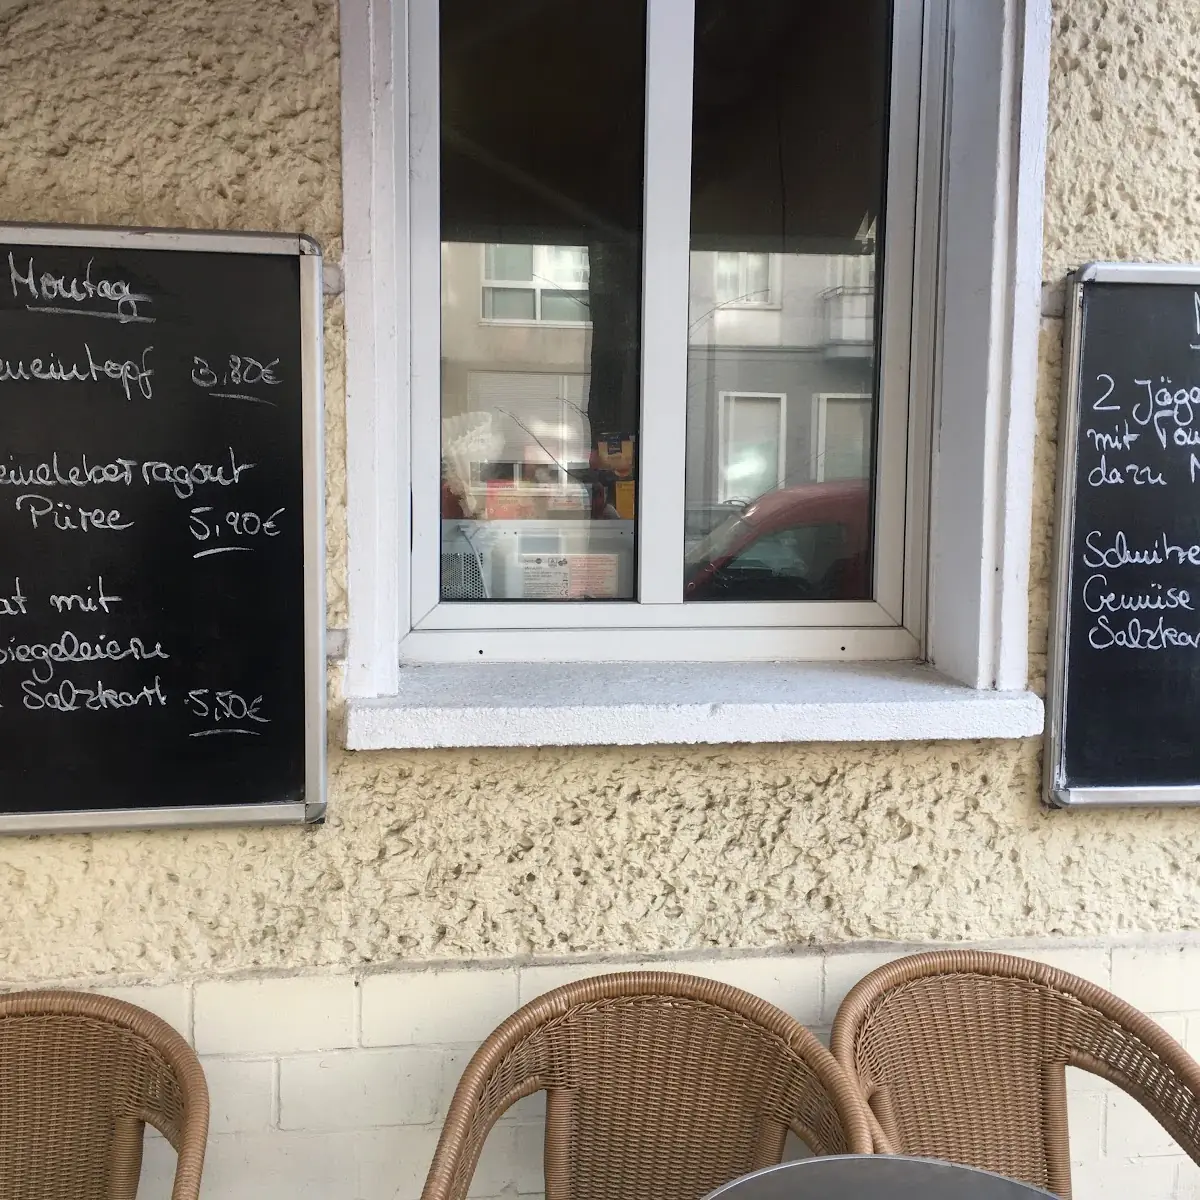 Montag
eneintopf 3,80€
eineleberragout
Püree 5,90€
at mit
piegeleiern
Salzkart 5,50€
2 Jäge
mit Tom
dazu N
Schnitze
Gemüse
Salzka